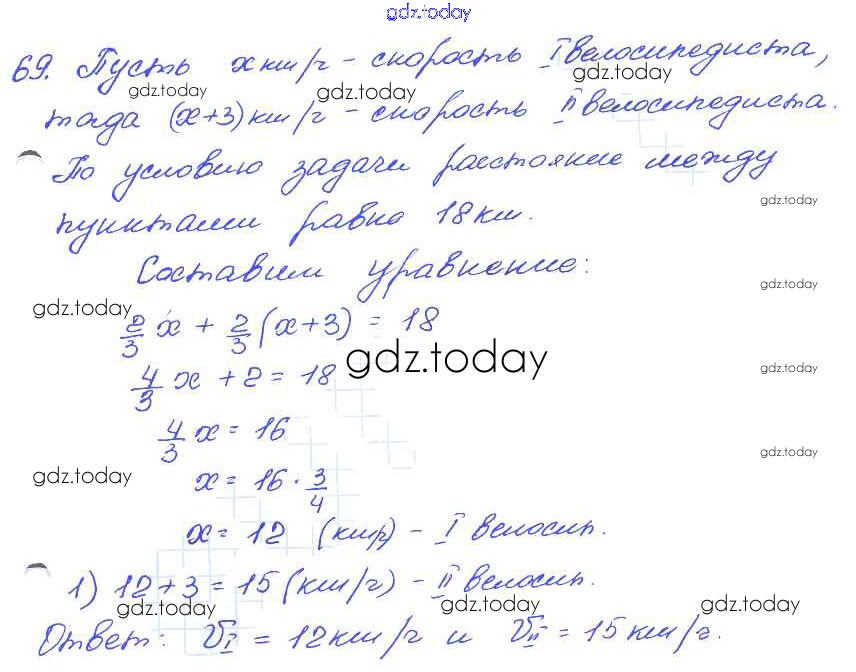 gdz.today
69. Пусть x км/ч - скорость I велосипедиста,
gdz.today gdz.today
тогда (x+3) км/ч - скорость II велосипедиста.
По условию задачи расстояние между
gdz.today
пунктами равно 18 км.
Составим уравнение:
gdz.today
gdz.today
2/3 x + 2/3 (x+3) = 18
gdz.today
4/3 x + 2 = 18
gdz.today
4/3 x = 16
gdz.today
gdz.today
x = 16 · 3/4
x = 12 (км/ч) - I велосип.
gdz.today gdz.today
1) 12+3 = 15 (км/ч) - II велосип.
gdz.today gdz.today gdz.today
Ответ: V_I = 12 км/ч и V_II = 15 км/ч.